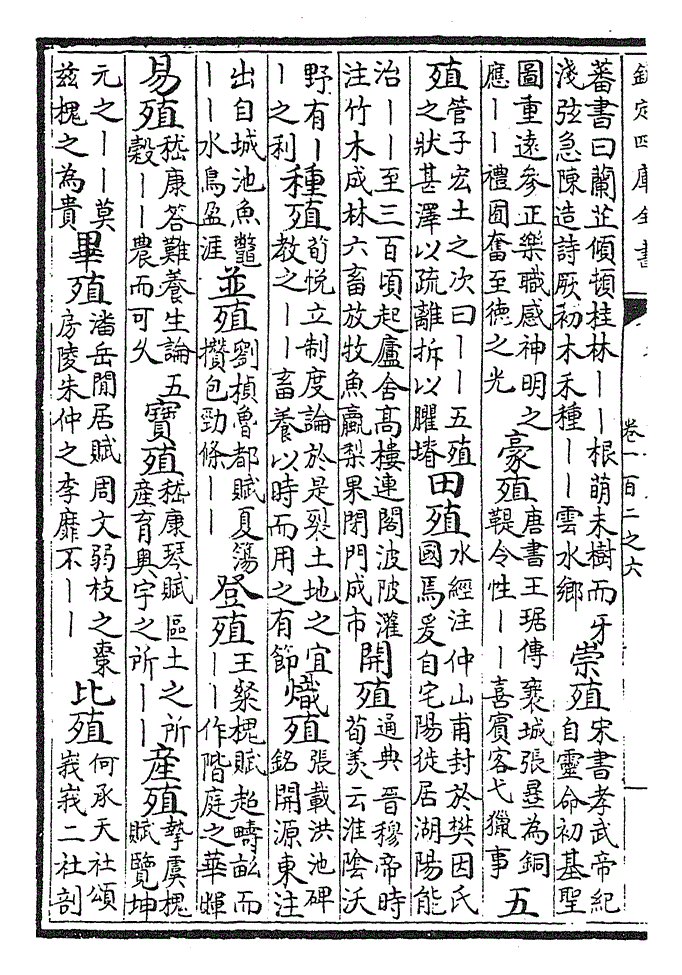 欽定四庫全書
卷一百二之六
蕃書曰蘭芷傾頓桂林丨丨根萌未樹而牙
淺弦急陳造詩厥初木禾種丨丨雲水鄉
崇殖
宋書孝武帝紀
自靈命初基聖
圖重遠參正樂職感神明之
應丨丨禮囿奮至德之光
豪殖
唐書王琚傳褒城張暈為銅
鞮令性丨丨喜賓客弋獵事
五
殖
管子宏土之次曰丨丨五殖
之狀甚澤以疏離拆以臞塉
田殖
水經注仲山甫封於樊因氏
國焉爰自宅陽徙居湖陽能
治丨丨至三百頃起廬舍高樓連閣波陂灌
注竹木成林六畜放牧魚蠃梨果閉門成市
開殖
通典晉穆帝時
荀羨云淮陰沃
野有丨
丨之利
種殖
荀悅立制度論於是裂土地之宜
教之丨丨畜養以時而用之有節
熾殖
張載洪池碑
銘開源東注
出自城池魚鼈
丨丨水鳥盈涯
並殖
劉楨魯都賦夏簜
攢包勁條丨丨
登殖
王粲槐賦超疇畝而
丨丨作階庭之華暉
易殖
嵇康答難養生論五
穀丨丨農而可久
寶殖
嵇康琴賦區土之所
產育奧宇之所丨丨
產殖
摯虞槐
賦覽坤
元之丨丨莫
茲槐之為貴
畢殖
潘岳閒居賦周文弱枝之棗
房陵朱仲之李靡不丨丨
比殖
何承天社頌
峩峩二社剖